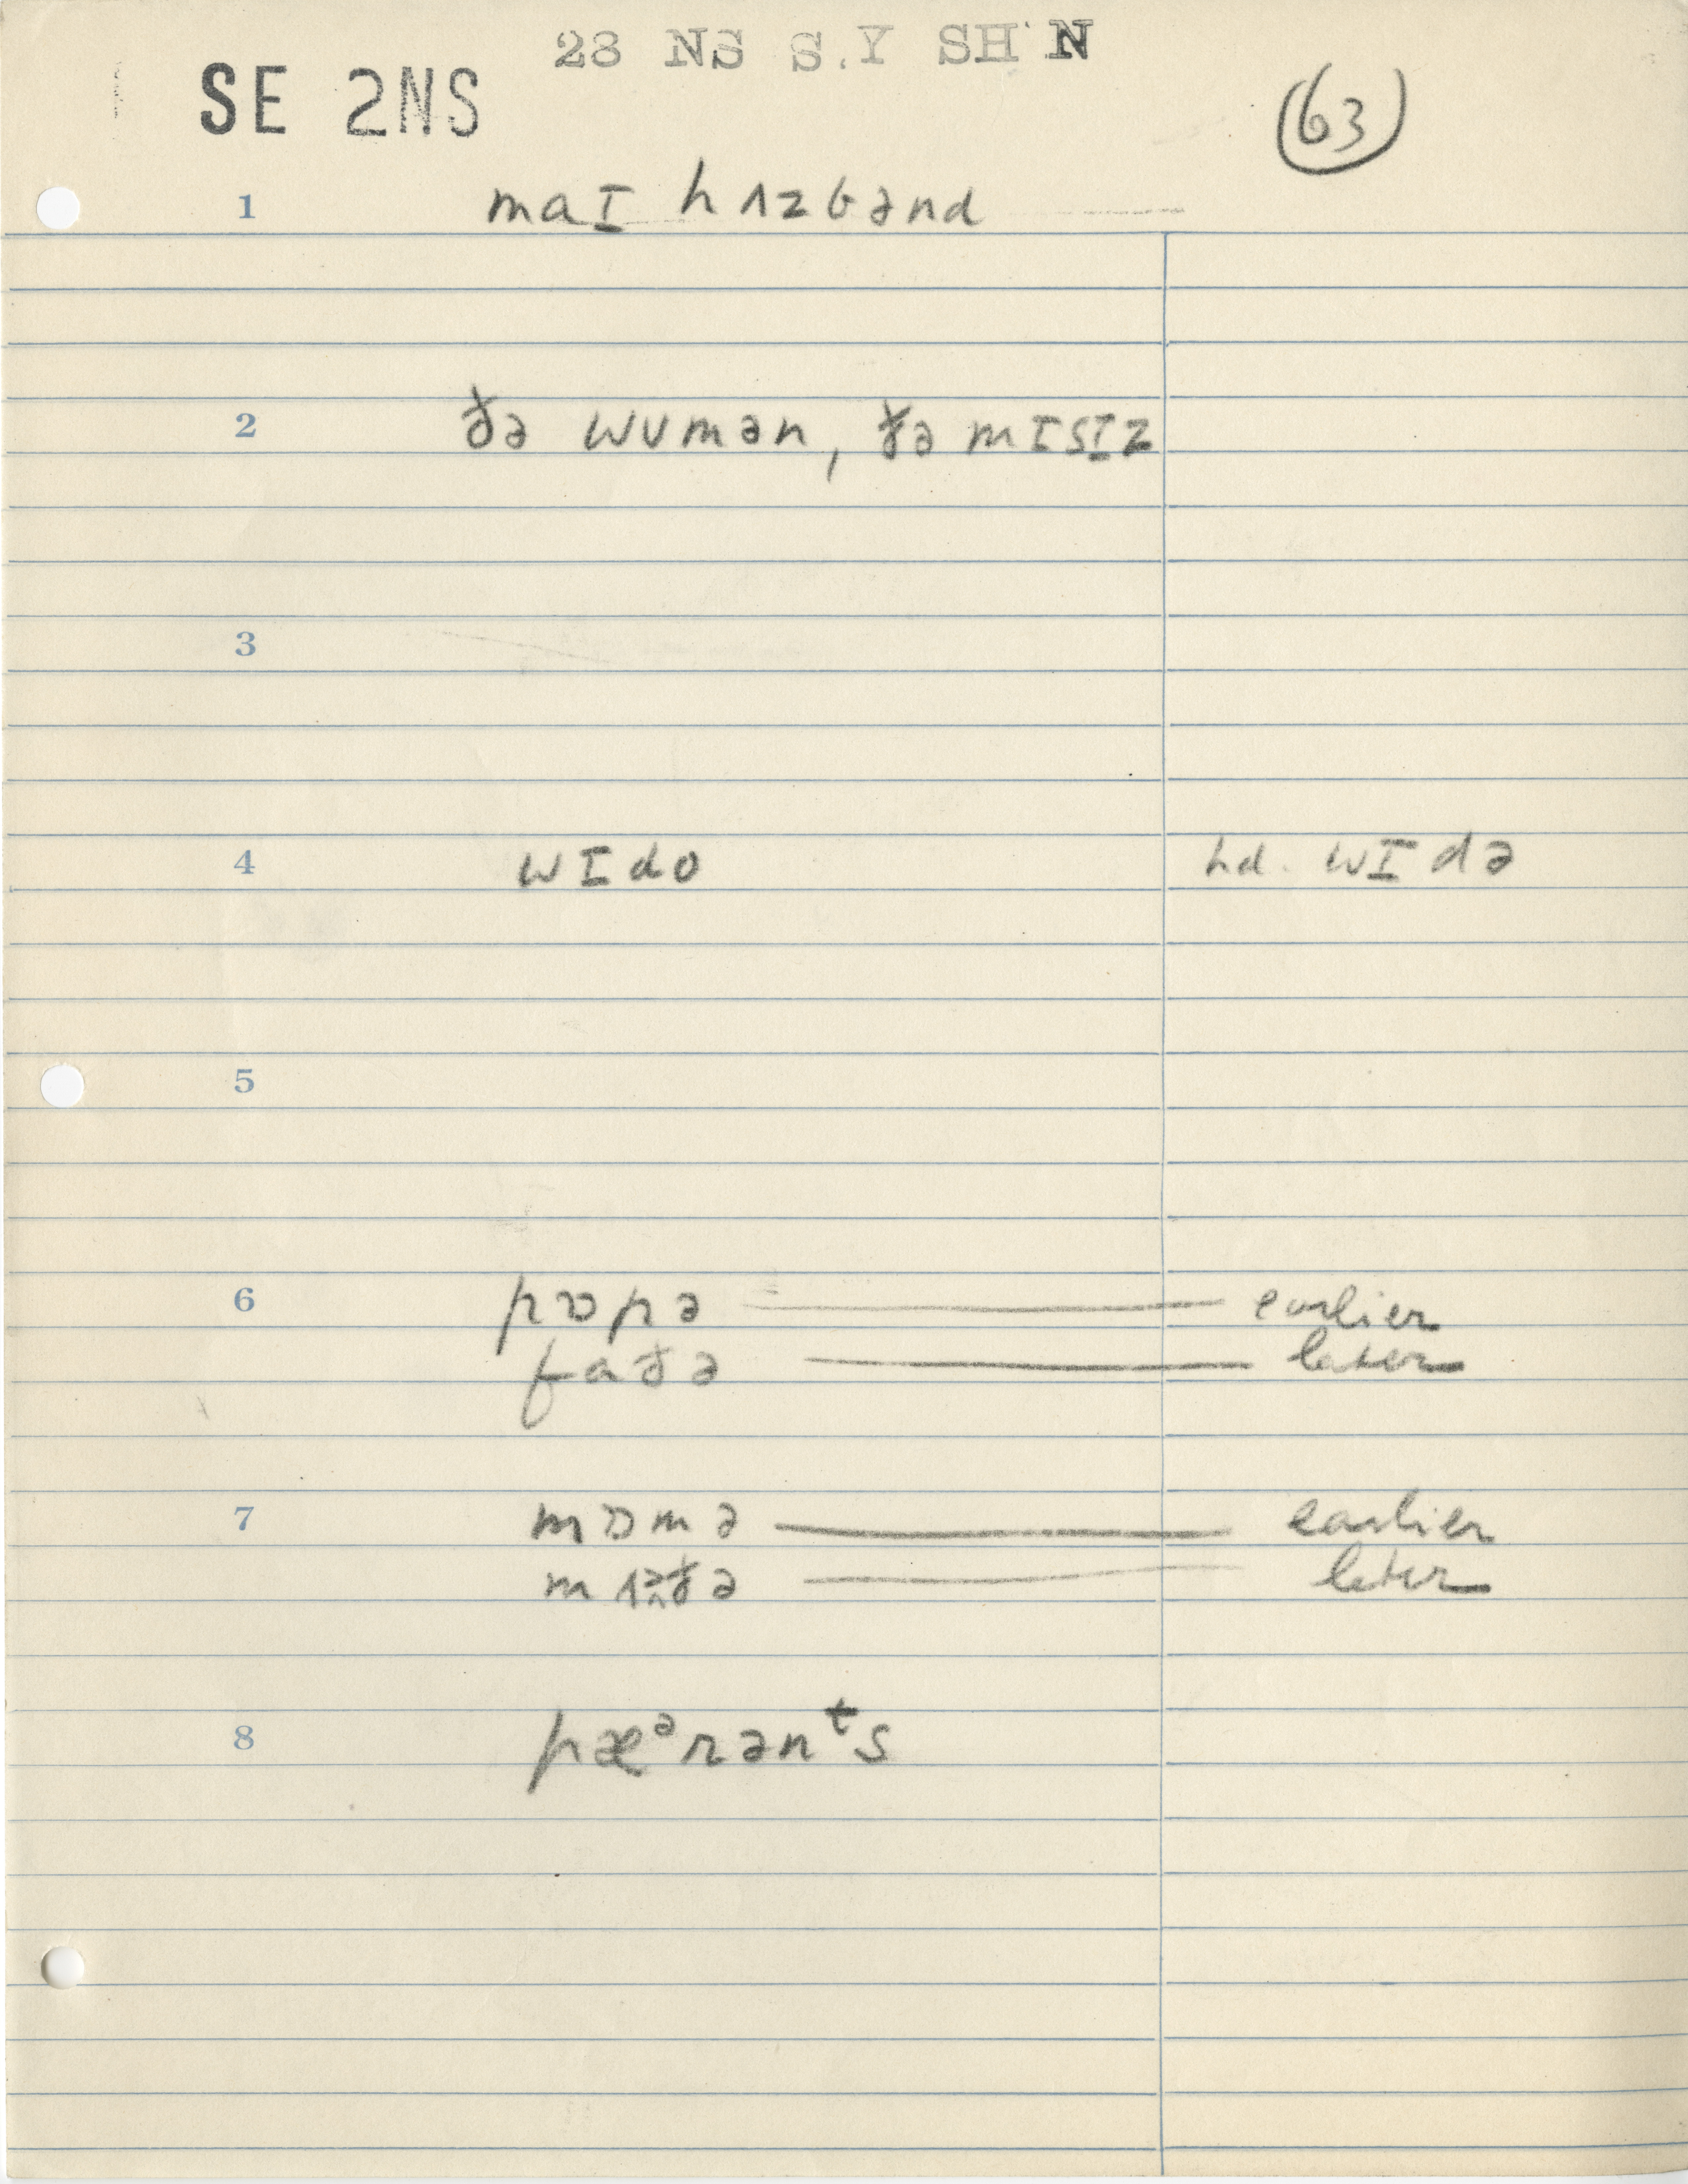 28 NS S.Y SH N
SE 2NS
(63)
1 maɪ hʌzbənd
2 ðə wumən, ðə mɪsɪz
3
4 wɪdo hd. wɪdə
5
6 pɒpə — earlier
faðə — later
7 mɒmə — earlier
ðə — later
8 pæᵊrənᵗs